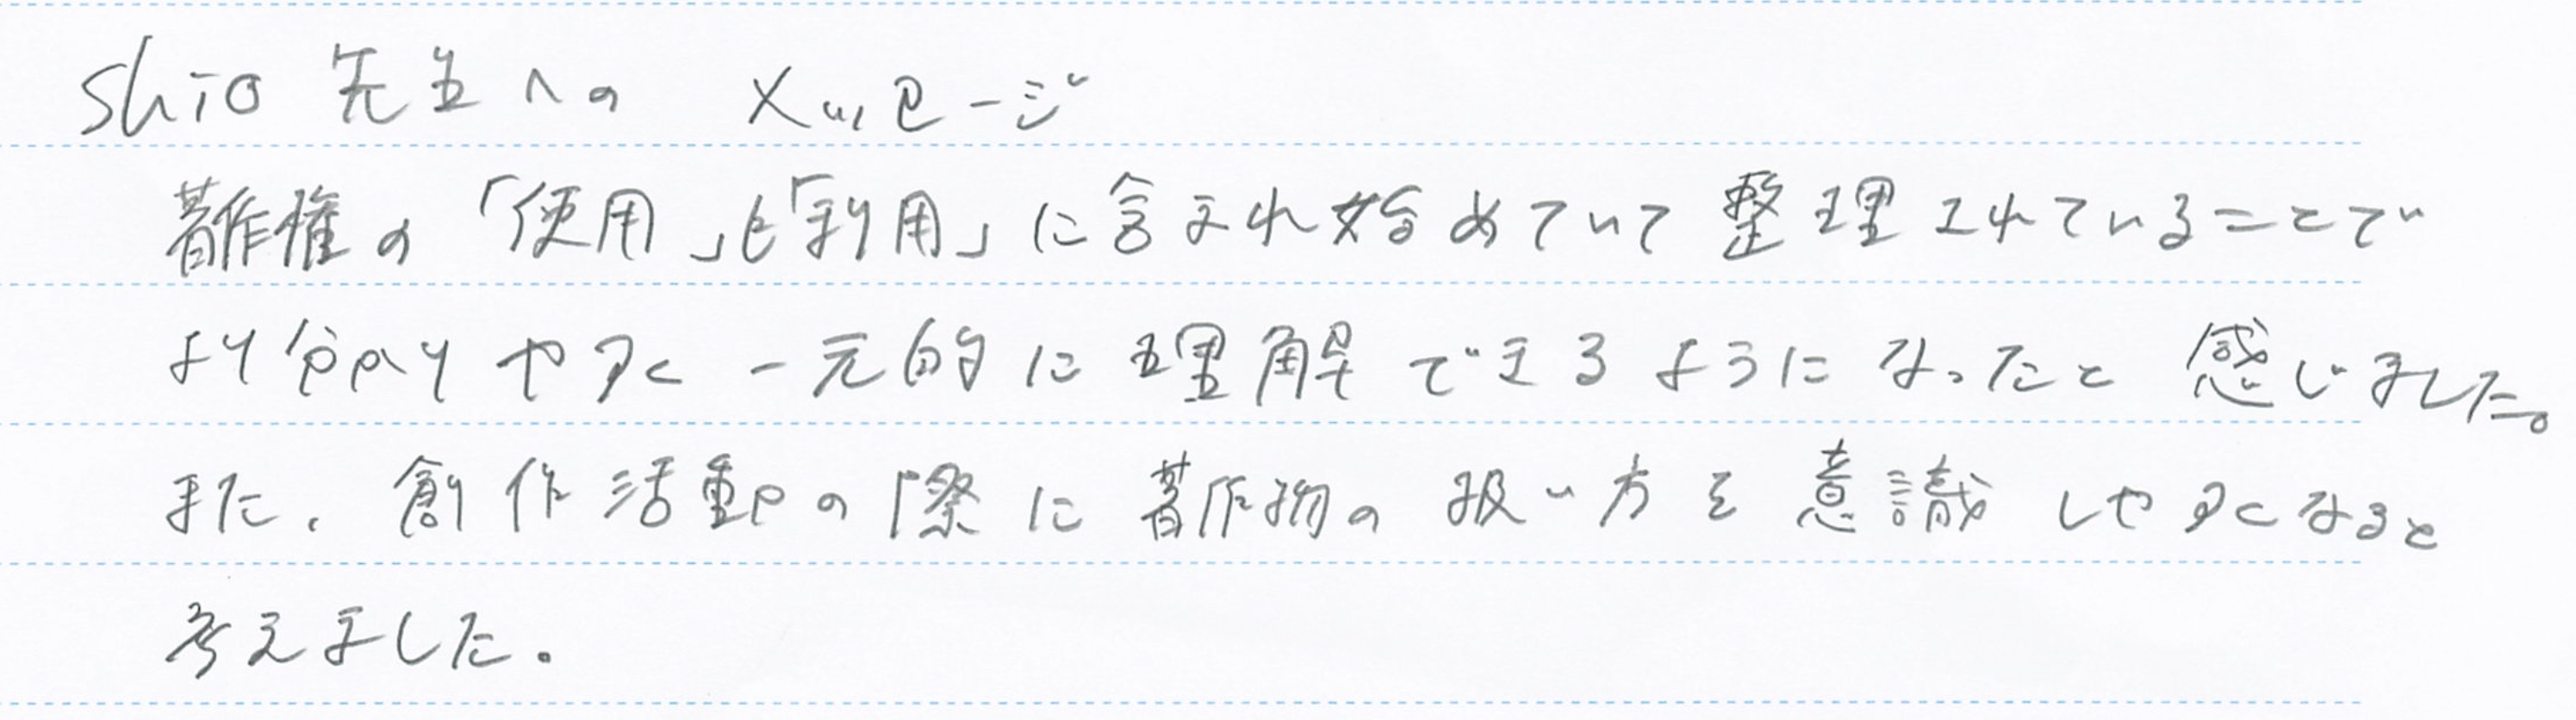 shio先生への メッセージ
著作権の「使用」も「利用」に含まれ始めていて整理されていることで
より分かりやすく一元的に理解できるようになったと感じました。
また、創作活動の際に著作物の扱い方を意識しやすくなると
考えました。